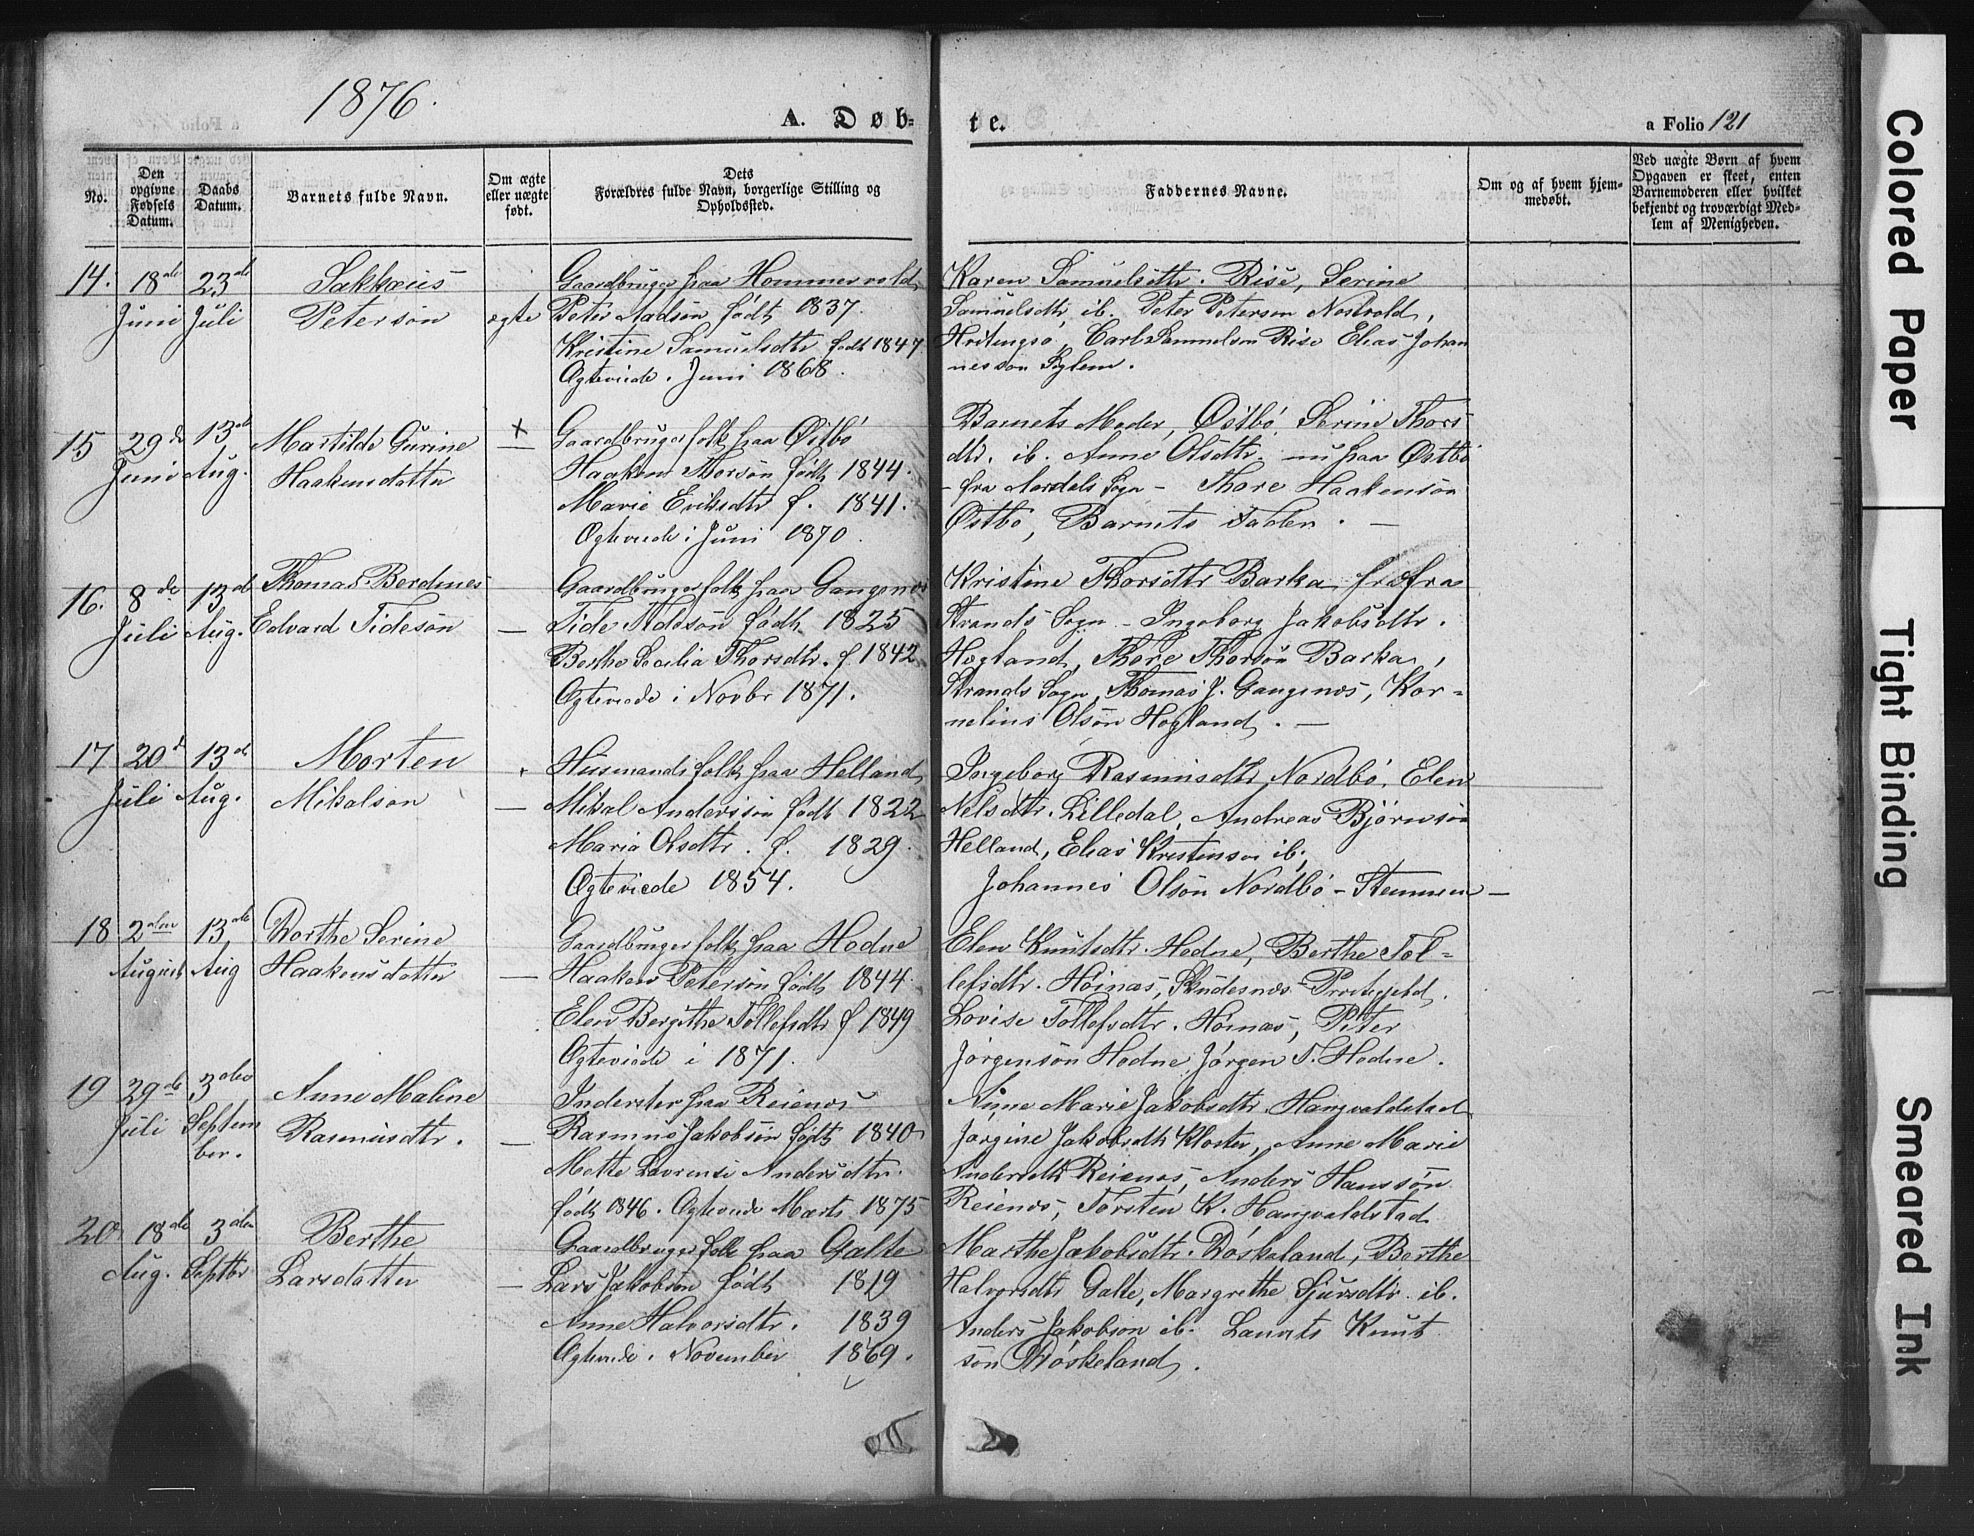 1876.
A. Døb=
te.
a Folio 121
No.
Den opgivne Fødsels Datum.
Daabs Datum.
Barnets fulde Navn.
Om ægte eller uægte født.
Dets Forældres fulde Navn, borgerlige Stilling og Opholdssted.
Faddernes Navne.
Om og af hvem hjemmedøbt.
Ved uægte Børn af hvem Opgaven er skeet, enten Barnemoderen eller hvilket bekjendt og troværdigt Medlem af Menigheden.
14. 18de Juni 23de Juli
Sakkæus
Peterson
ægte
Gaardbruger fraa Hommervold
Peter Madsøn født 1837.
Kristine Samuelsdtr født 1847
Ægteviede. Juni 1868.
Karen Samuelsdtr. Rise, Serine
Samuelsdtr ib. Peter Peterson
Carl Samuelson Rise Elias Johan
nesson
15 29de Juni 13de Aug.
Martilde Gurine
Haakensdatter
+ —
Gaardbrugerfolk fraa Østbö
Haaken Thorsön født 1844.
Marie Eriksdtr f. 1841.
Ægteviede i Juni 1870.
Barnets Moder, Østbö, Serine Thors
dtr. ib. Anne Olsdtr. — nu fraa Østbö
— fra Sogn — Thore Haakensön
Østbö, Barnets Fader. —
16. 8de Juli 13de Aug.
Thomas Berdines
Edvard Tidesön
—
Gaardbrugerfolk fraa Gangenes
Tide født 1825
Berthe Secilia Thorsdtr. f. 1842
Ægteviede i Novbr 1871.
Kristine Thorsdtr Barka fra
Strands Sogn — Ingeborg Jakobsdtr.
Hogland, Thore Thorsön Barka,
Strands Sogn, Thomas J. Gangenes, Kor=
nelius Olsön Hogland. —
17 20de Juli 13de Aug.
Morten
Mikalson
—
Husmandsfolk fraa Helland
Mikal Andersson født 1822
Maria Olsdtr. f. 1829.
Ægteviede 1854.
Ingeborg Rasmusdtr Nordbö, Elen
Nelsdtr. Lilledal, Andreas Bjørnsön
Helland, Elias Kristenson ib.
Johannes Olsön Nordbö —
18 2den August 13de Aug
Dorthe Serine
Haakensdatter
—
Gaardbrugerfolk fraa Hodne
Haaken Petersön født 1844.
Elen Bergithe Tollefsdtr f 1849
Ægteviede i 1871.
Elen Knutsdtr. Hodne, Berthe Tol=
lefsdtr. Höinas, Skudesnæs Prestegjeld.
Lovise Tollefsdtr. Höinas, Peter
Jörgensön Hodne, Jörgen T. Hodne.
19 29de Juli 3den Septem
ber.
Anne Maline
Rasmusdtr.
—
Inderster fraa Reienes
Rasmus Jakobsön født 1840
Mette Lavrense Andersdtr.
født 1846. Ægteviede Marts 1875
Anne Marie Jakobsdtr. Haugvaldstad
Jørgine Jakobsdtr Kloster, Anne Marie
Andersdtr Reienes, Anders Hanssön
Reienes, Torsten K. Haugvaldstad
20 18de Aug. 3den Septbr
Berthe
Larsdatter
—
Gaardbrugerfolk fraa Galte
Lars Jakobson født 1819
Anne Halvorsdtr. 1839
Ægteviede. November 1869.
Marthe Jakobsdtr. Döskeland, Berthe
Halvorsdtr Galte, Margrethe Sjursdtr ib.
Anders Jakobson ib. Laurits Knut
son Döskeland.
Colored Paper
Tight Binding
Smeared Ink